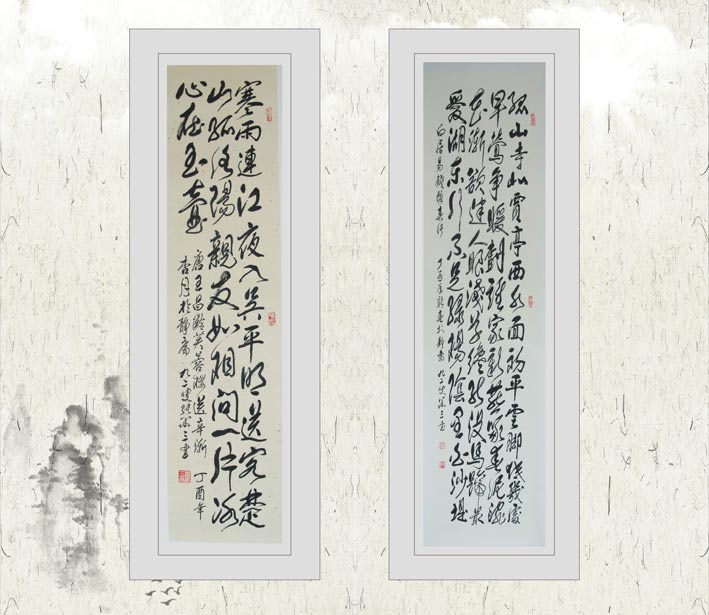 寒雨連江夜入吳平明送客楚
山孤洛陽親友如相問一片冰
心在玉壺
唐王昌齡芙蓉樓送辛漸 丁酉年
杏月於靜齋 九二叟 三書
孤山寺北賈亭西水面初平雲腳低幾處
早鶯爭暖樹誰家新燕啄春泥亂
花漸欲迷人眼淺草纔能沒馬蹄最
愛湖東行不足綠楊陰里白沙堤
白居易錢塘春行 丁酉年新春於靜齋 九二叟 三書